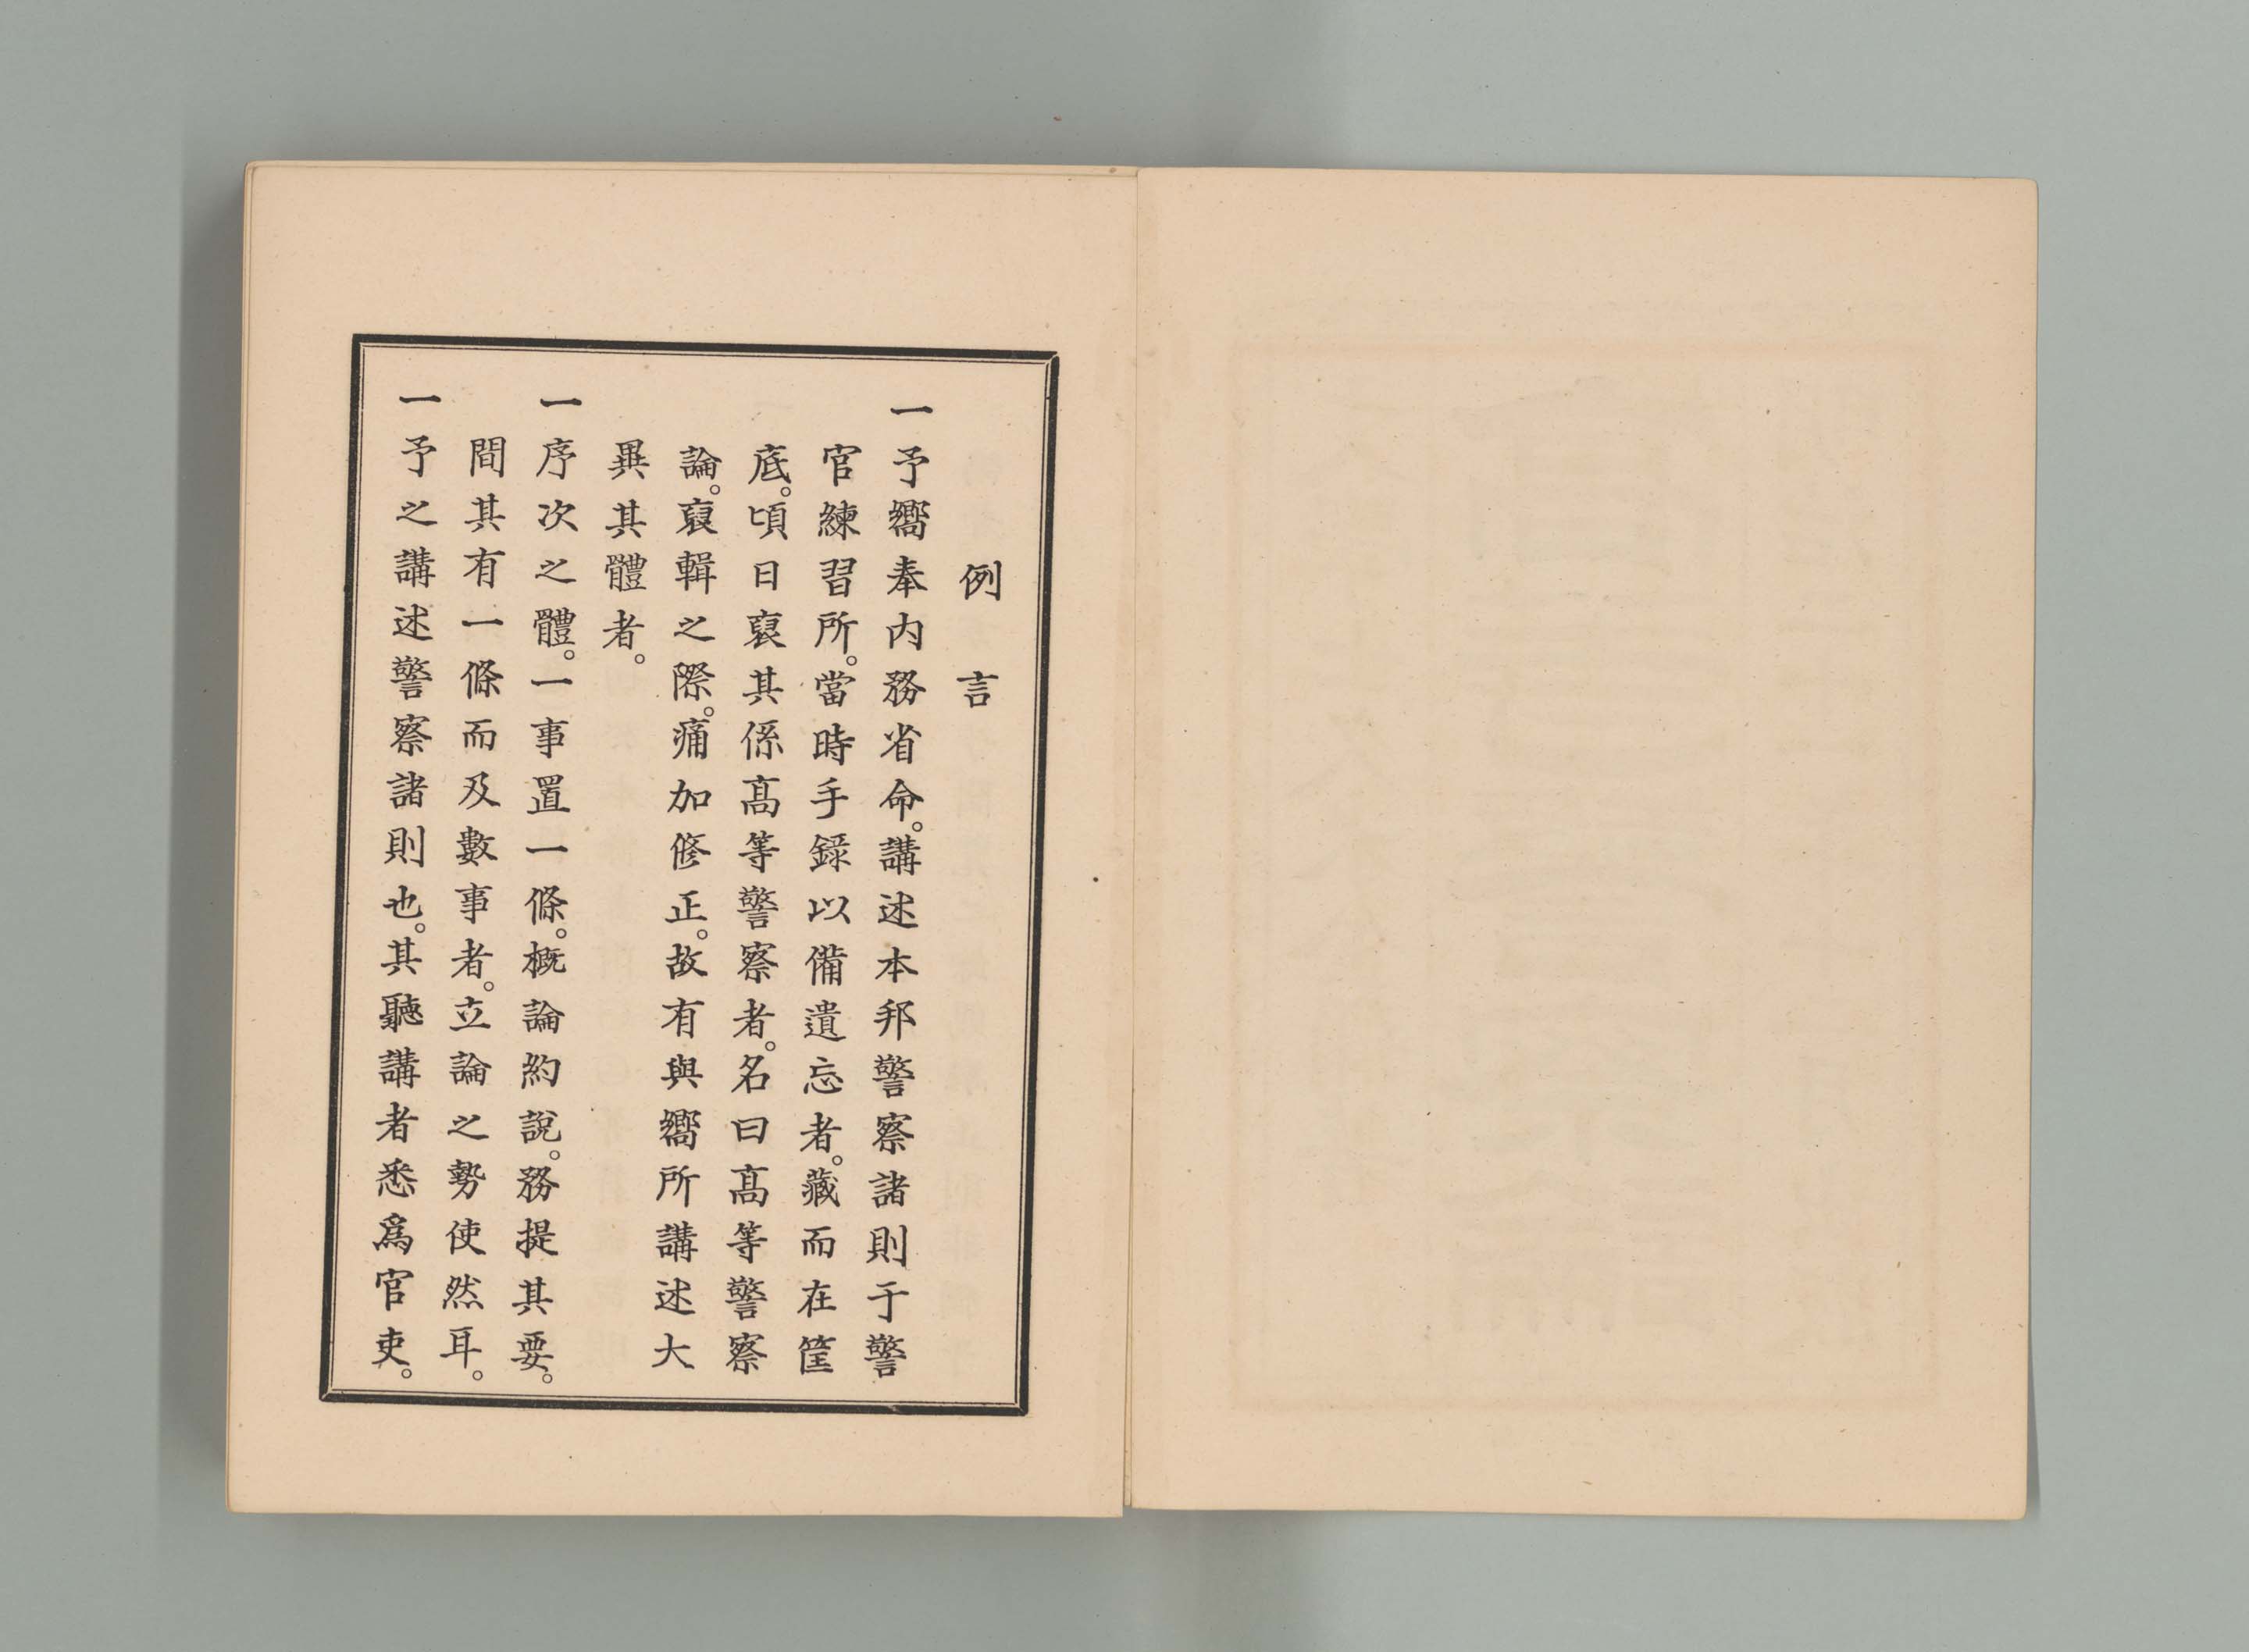 例言
一予嚮奉内務省命。講述本邦警察諸則于警
官練習所。當時手錄以備遺忘者。藏而在筐
底。頃日裒其係髙等警察者。名曰髙等警察
論。裒輯之際。痛加修正。故有與嚮所講述大
異其體者。
一序次之體。一事置一條。概論約說。務提其要。
間其有一條而及數事者。立論之勢使然耳。
一予之講述警察諸則也。其聽講者悉爲官吏。